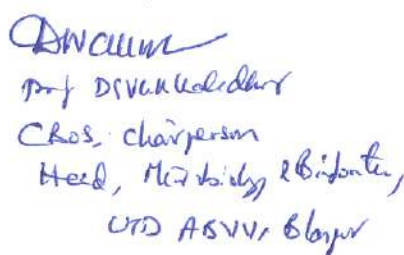 Prof DSVGK Kaladhar
CBOS, chairperson
Head, Microbiology & Bioinformatics,
UTD ABVV, Bilaspur